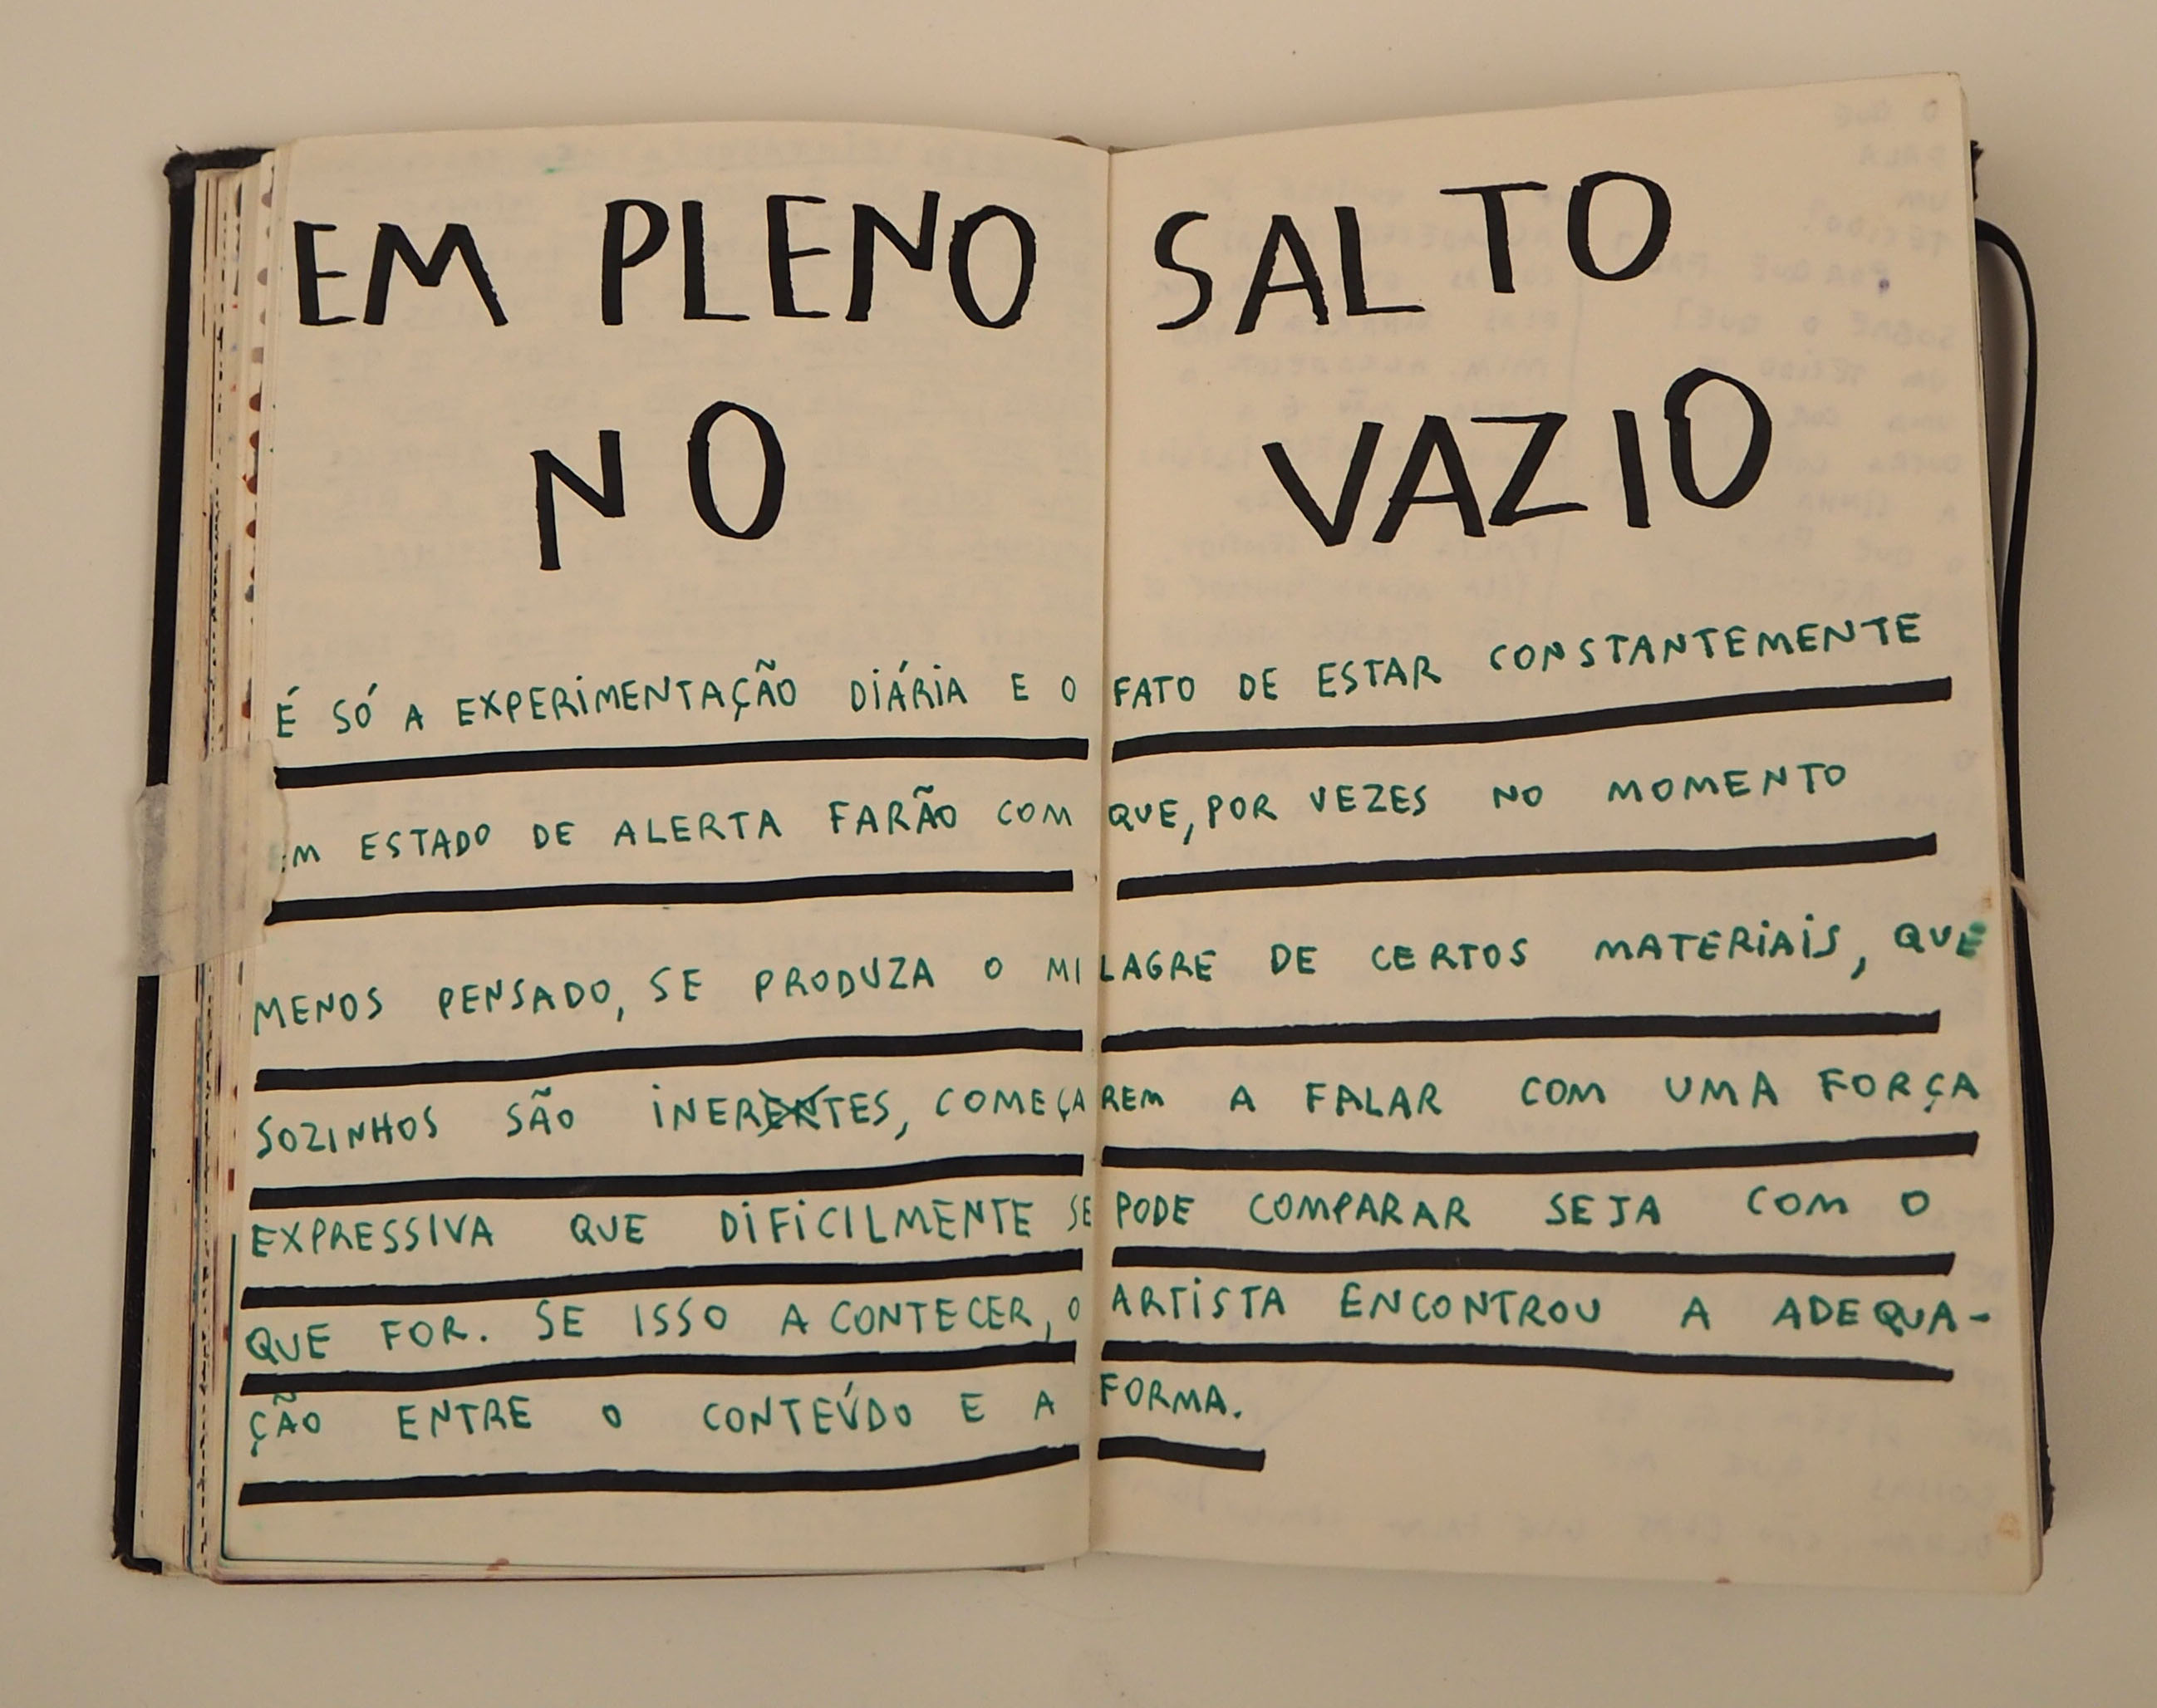 EM PLENO SALTO
NO VAZIO
É SÓ A EXPERIMENTAÇÃO DIÁRIA E O FATO DE ESTAR CONSTANTEMENTE
EM ESTADO DE ALERTA FARÃO COM QUE, POR VEZES NO MOMENTO
MENOS PENSADO, SE PRODUZA O MILAGRE DE CERTOS MATERIAIS, QUE
SOZINHOS SÃO INERTES, COMEÇAREM A FALAR COM UMA FORÇA
EXPRESSIVA QUE DIFICILMENTE SE PODE COMPARAR SEJA COM O
QUE FOR. SE ISSO ACONTECER, O ARTISTA ENCONTROU A ADEQUA-
ÇÃO ENTRE O CONTEÚDO E A FORMA.